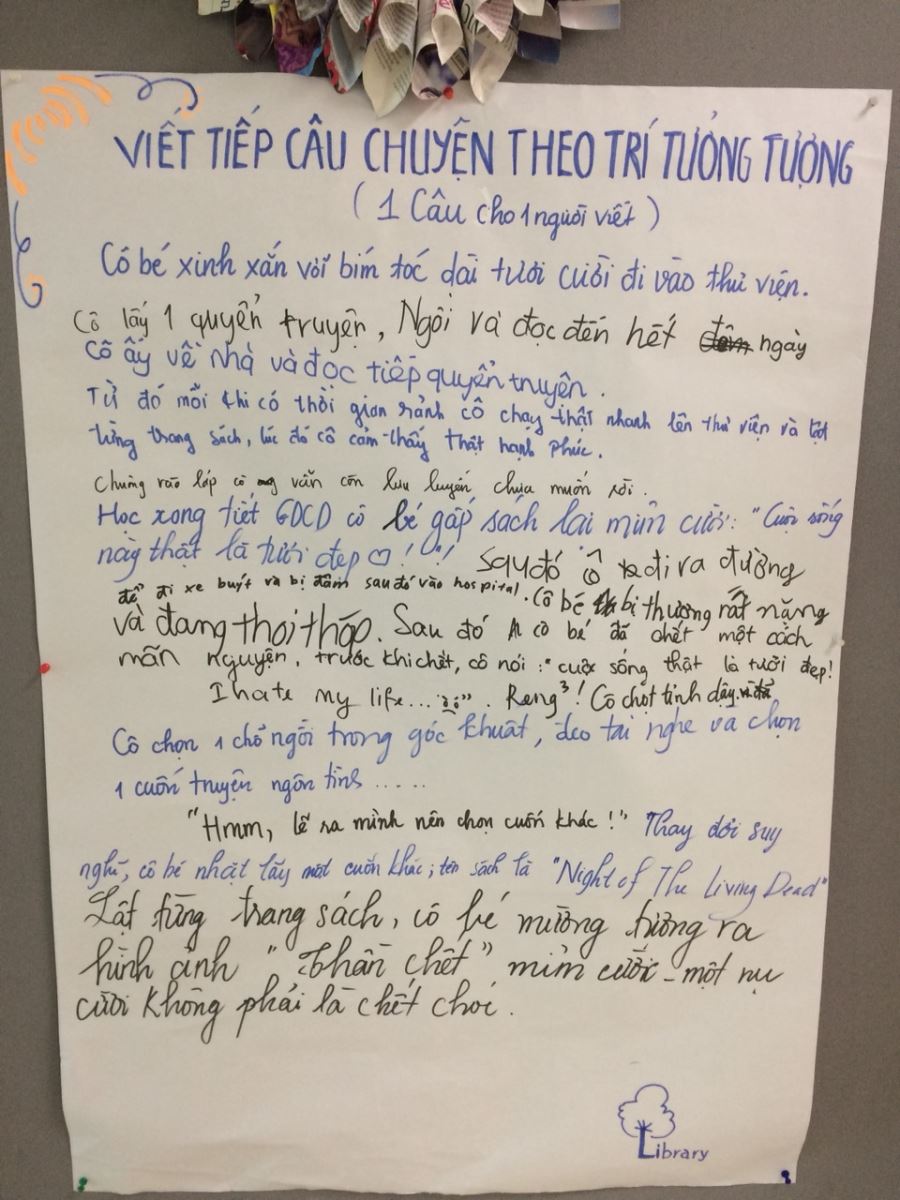 VIẾT TIẾP CÂU CHUYỆN THEO TRÍ TƯỞNG TƯỢNG
( 1 Câu cho 1 người viết )
Cô bé xinh xắn với bím tóc dài tươi cười đi vào thư viện.
Cô lấy 1 quyển truyện, Ngồi và đọc đến hết ngày
Cô ấy về nhà và đọc tiếp quyển truyện.
Từ đó mỗi khi có thời gian rảnh cô chạy thật nhanh lên thư viện và lật
từng trang sách, lúc đó cô cảm thấy thật hạnh phúc.
Chuông vào lớp cô vẫn còn lưu luyến chưa muốn rời.
Học xong tiết GDCD cô bé gấp sách lại mỉm cười: "Cuộc sống
này thật là tươi đẹp ♡! "! Sau đó cô đi ra đường
để đi xe buýt và bị đâm sau đó vào hospital. Cô bé bị thương rất nặng
và đang thoi thóp. Sau đó cô bé đã chết một cách
mãn nguyện, trước khi chết, cô nói: "cuộc sống thật là tươi đẹp!
I hate my life... ". Reng³! Cô chợt tỉnh dậy.
Cô chọn 1 chỗ ngồi trong góc khuất, đeo tai nghe và chọn
1 cuốn truyện ngôn tình .....
"Hmm, lẽ ra mình nên chọn cuốn khác!" Thay đổi suy
nghĩ, cô bé nhặt lấy một cuốn khác; tên sách là "Night of The Living Dead"
Lật từng trang sách, cô bé mường tượng ra
hình ảnh "Thần chết" mỉm cười - một nụ
cười không phải là chết chóc.
Library